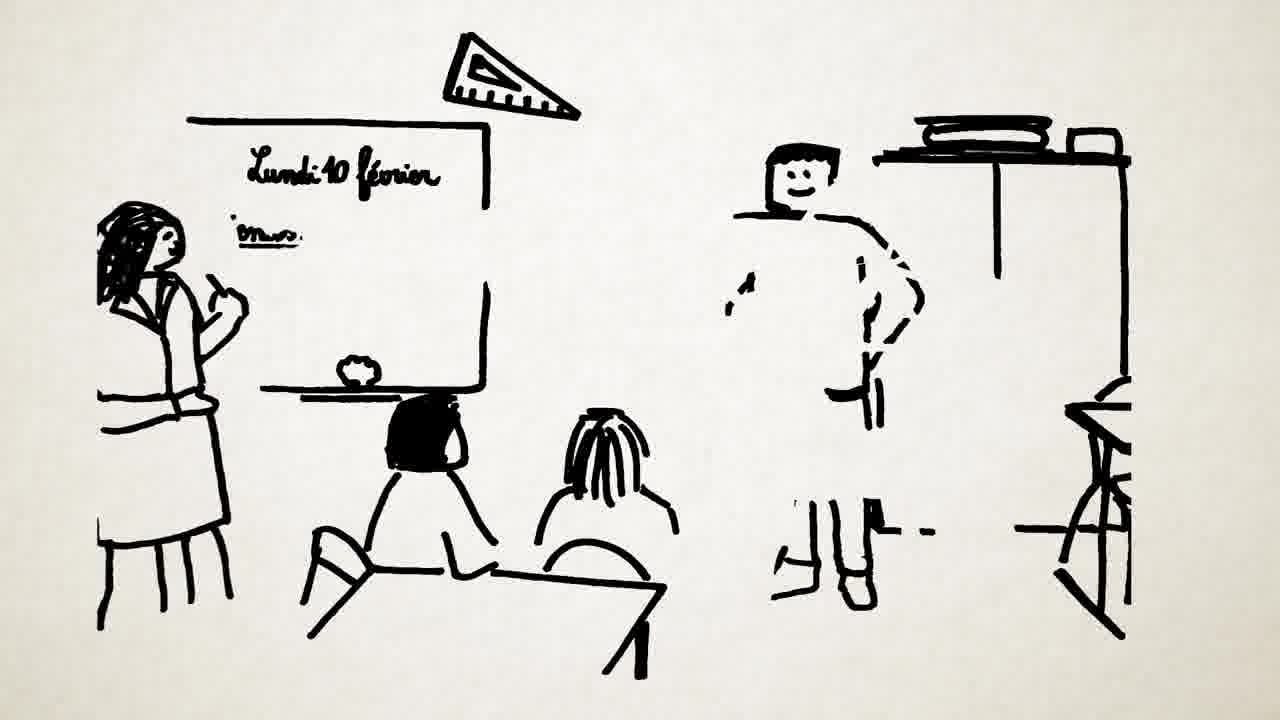 Lundi 10 février